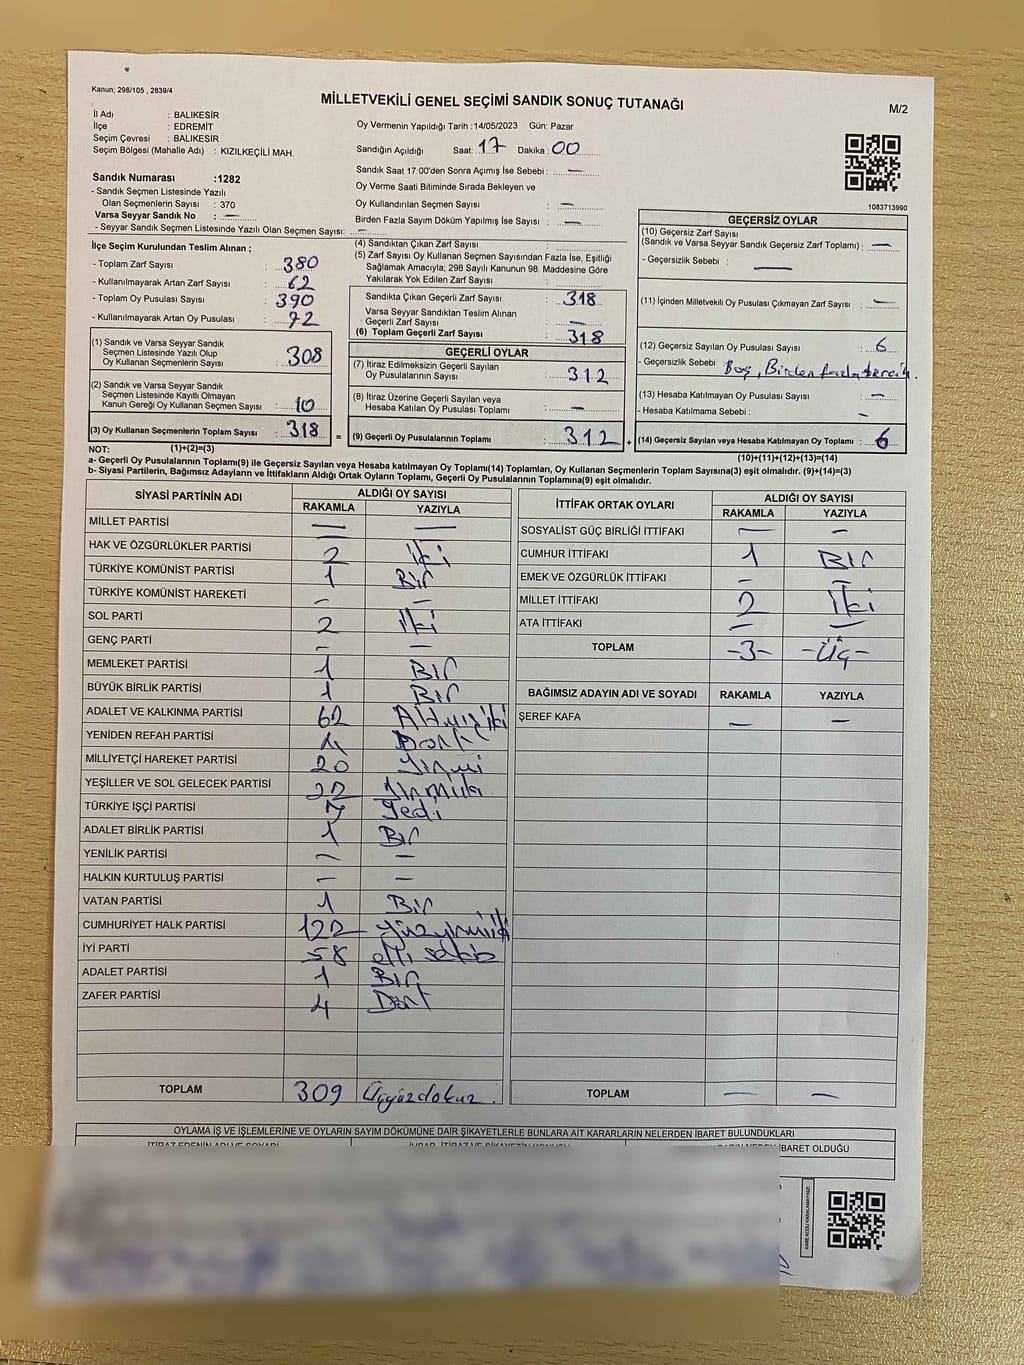 Kanun; 298/105 , 2839/4
MİLLETVEKİLİ GENEL SEÇİMİ SANDIK SONUÇ TUTANAĞI
M/2
İl Adı : BALIKESİR
İlçe : EDREMİT
Seçim Çevresi : BALIKESİR
Seçim Bölgesi (Mahalle Adı) : KIZILKEÇİLİ MAH.
Sandık Numarası :1282
- Sandık Seçmen Listesinde Yazılı
Olan Seçmenlerin Sayısı : 370
Varsa Seyyar Sandık No : —
- Seyyar Sandık Seçmen Listesinde Yazılı Olan Seçmen Sayısı: —
Oy Vermenin Yapıldığı Tarih :14/05/2023 Gün: Pazar
Sandığın Açıldığı Saat: 17 Dakika : 00
Sandık Saat 17:00'den Sonra Açımış İse Sebebi : —
Oy Verme Saati Bitiminde Sırada Bekleyen ve
Oy Kullandırılan Seçmen Sayısı : —
Birden Fazla Sayım Döküm Yapılmış İse Sayısı : —
1083713990
İlçe Seçim Kurulundan Teslim Alınan ;
- Toplam Zarf Sayısı : 380
- Kullanılmayarak Artan Zarf Sayısı : 62
- Toplam Oy Pusulası Sayısı : 390
- Kullanılmayarak Artan Oy Pusulası : 72
(1) Sandık ve Varsa Seyyar Sandık
Seçmen Listesinde Yazılı Olup
Oy Kullanan Seçmenlerin Sayısı : 308
(2) Sandık ve Varsa Seyyar Sandık
Seçmen Listesinde Kayıtlı Olmayan
Kanun Gereği Oy Kullanan Seçmen Sayısı : 10
(3) Oy Kullanan Seçmenlerin Toplam Sayısı : 318
(4) Sandıktan Çıkan Zarf Sayısı :
(5) Zarf Sayısı Oy Kullanan Seçmen Sayısından Fazla İse, Eşitliği
Sağlamak Amacıyla; 298 Sayılı Kanunun 98. Maddesine Göre
Yakılarak Yok Edilen Zarf Sayısı :
Sandıkta Çıkan Geçerli Zarf Sayısı : 318
Varsa Seyyar Sandıktan Teslim Alınan
Geçerli Zarf Sayısı : —
(6) Toplam Geçerli Zarf Sayısı : 318
GEÇERLİ OYLAR
(7) İtiraz Edilmeksizin Geçerli Sayılan
Oy Pusulalarının Sayısı : 312
(8) İtiraz Üzerine Geçerli Sayılan veya
Hesaba Katılan Oy Pusulası Toplamı : —
= (9) Geçerli Oy Pusulalarının Toplamı : 312 +
GEÇERSİZ OYLAR
(10) Geçersiz Zarf Sayısı
(Sandık ve Varsa Seyyar Sandık Geçersiz Zarf Toplamı) : —
- Geçersizlik Sebebi : —
(11) İçinden Milletvekili Oy Pusulası Çıkmayan Zarf Sayısı : —
(12) Geçersiz Sayılan Oy Pusulası Sayısı : 6
- Geçersizlik Sebebi : Boş, Birden fazla tercih.
(13) Hesaba Katılmayan Oy Pusulası Sayısı : —
- Hesaba Katılmama Sebebi : —
(14) Geçersiz Sayılan veya Hesaba Katılmayan Oy Toplamı : 6
NOT: (1)+(2)=(3)
(10)+(11)+(12)+(13)=(14)
a- Geçerli Oy Pusulalarının Toplamı(9) ile Geçersiz Sayılan veya Hesaba katılmayan Oy Toplamı(14) Toplamları, Oy Kullanan Seçmenlerin Toplam Sayısına(3) eşit olmalıdır. (9)+(14)=(3)
b- Siyasi Partilerin, Bağımsız Adayların ve İttifakların Aldığı Ortak Oyların Toplamı, Geçerli Oy Pusulalarının Toplamına(9) eşit olmalıdır.
SİYASİ PARTİNİN ADI ALDIĞI OY SAYISI
RAKAMLA YAZIYLA
MİLLET PARTİSİ — —
HAK VE ÖZGÜRLÜKLER PARTİSİ 2 İki
TÜRKİYE KOMÜNİST PARTİSİ 1 Bir
TÜRKİYE KOMÜNİST HAREKETİ — —
SOL PARTİ 2 İki
GENÇ PARTİ — —
MEMLEKET PARTİSİ 1 Bir
BÜYÜK BİRLİK PARTİSİ 1 Bir
ADALET VE KALKINMA PARTİSİ 62 Altmışiki
YENİDEN REFAH PARTİSİ 4 Dört
MİLLİYETÇİ HAREKET PARTİSİ 20 Yirmi
YEŞİLLER VE SOL GELECEK PARTİSİ 22 Yirmiiki
TÜRKİYE İŞÇİ PARTİSİ 7 Yedi
ADALET BİRLİK PARTİSİ 1 Bir
YENİLİK PARTİSİ — —
HALKIN KURTULUŞ PARTİSİ — —
VATAN PARTİSİ 1 Bir
CUMHURİYET HALK PARTİSİ 122 Yüzyirmiiki
İYİ PARTİ 58 elli sekiz
ADALET PARTİSİ 1 Bir
ZAFER PARTİSİ 4 Dört
TOPLAM 309 Üçyüzdokuz.
İTTİFAK ORTAK OYLARI ALDIĞI OY SAYISI
RAKAMLA YAZIYLA
SOSYALİST GÜÇ BİRLİĞİ İTTİFAKI — —
CUMHUR İTTİFAKI 1 Bir
EMEK VE ÖZGÜRLÜK İTTİFAKI — —
MİLLET İTTİFAKI 2 İki
ATA İTTİFAKI — —
TOPLAM -3- -Üç-
BAĞIMSIZ ADAYIN ADI VE SOYADI RAKAMLA YAZIYLA
ŞEREF KAFA — —
TOPLAM — —
OYLAMA İŞ VE İŞLEMLERİNE VE OYLARIN SAYIM DÖKÜMÜNE DAİR ŞİKAYETLERLE BUNLARA AİT KARARLARIN NELERDEN İBARET BULUNDUKLARI
İBARET OLDUĞU